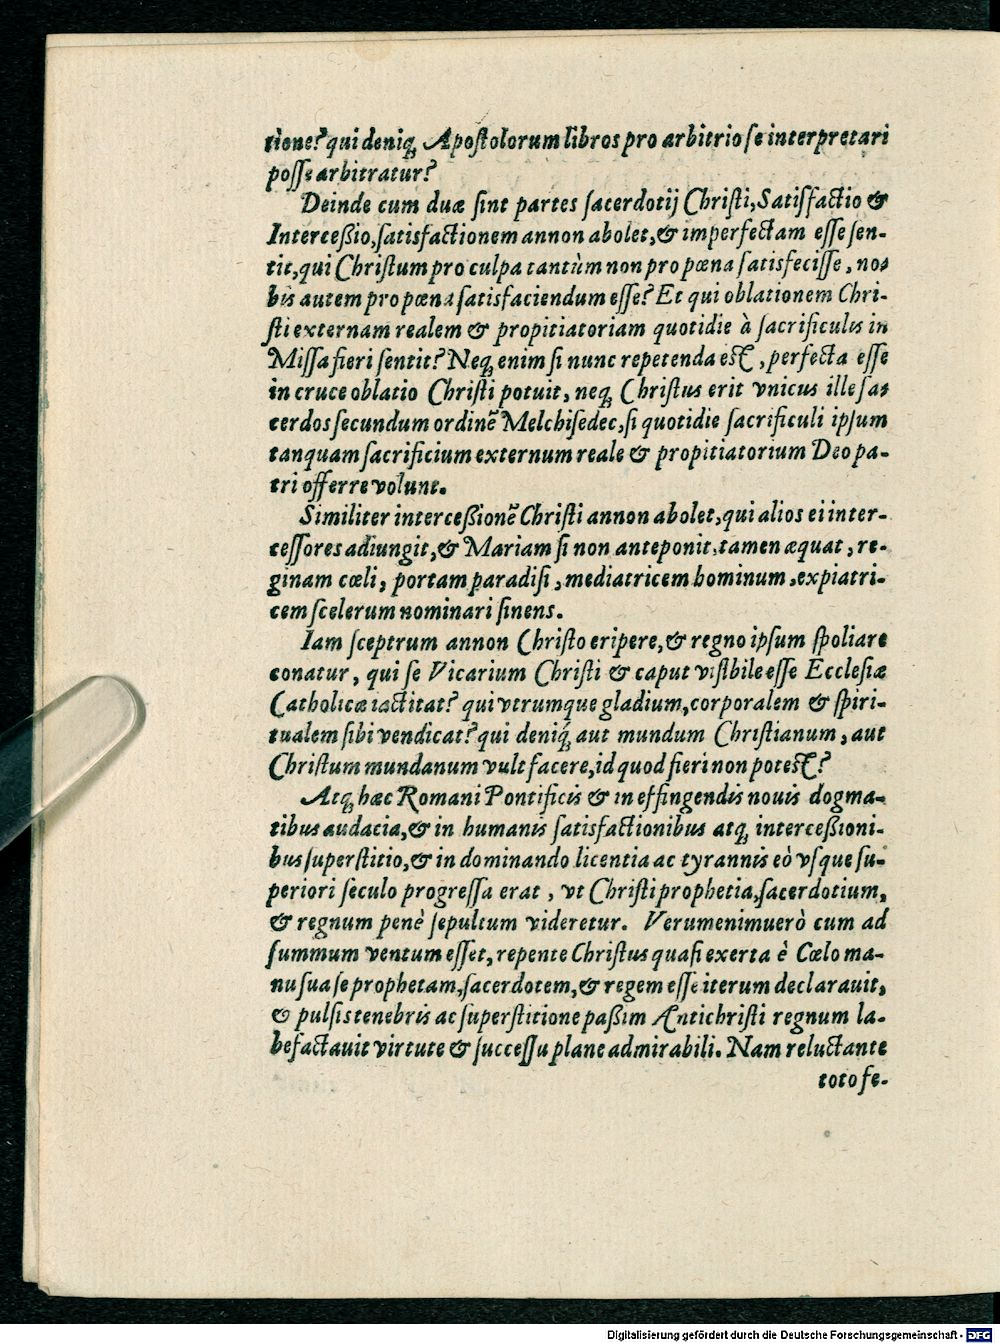 tione? qui deniq; Apostolorum libros pro arbitrio se interpretari
posse arbitratur?
Deinde cum duæ sint partes sacerdotij Christi, Satisfactio &
Interceßio, satisfactionem annon abolet, & imperfectam esse sen-
tit, qui Christum pro culpa tantùm non pro pœna satisfecisse, no-
bis autem pro pœna satisfaciendum esse? Et qui oblationem Chri-
sti externam realem & propitiatoriam quotidie à sacrificulis in
Missa fieri sentit? Neq; enim si nunc repetenda est, perfecta esse
in cruce oblatio Christi potuit, neq; Christus erit vnicus ille sa-
cerdos secundum ordinē Melchisedec, si quotidie sacrificuli ipsum
tanquam sacrificium externum reale & propitiatorium Deo pa-
tri offerre volunt.
Similiter interceßionē Christi annon abolet, qui alios ei inter-
cessores adiungit, & Mariam si non anteponit, tamen æquat, re-
ginam cœli, portam paradisi, mediatricem hominum, expiatri-
cem scelerum nominari sinens.
Iam sceptrum annon Christo eripere, & regno ipsum spoliare
conatur, qui se Vicarium Christi & caput visibile esse Ecclesiæ
Catholicæ iactitat? qui vtrumque gladium, corporalem & spiri-
tualem sibi vendicat? qui deniq; aut mundum Christianum, aut
Christum mundanum vult facere, id quod fieri non potest?
Atq; hæc Romani Pontificis & in effingendis nouis dogma-
tibus audacia, & in humanis satisfactionibus atq; interceßioni-
bus superstitio, & in dominando licentia ac tyrannis eò vsque su-
periori seculo progressa erat, vt Christi prophetia, sacerdotium,
& regnum penè sepultum videretur. Verumenimuerò cum ad
summum ventum esset, repente Christus quasi exerta è Cœlo ma-
nu sua se prophetam, sacerdotem, & regem esse iterum declarauit,
& pulsis tenebris ac superstitione paßim Æntichristi regnum la-
befactauit virtute & successu plane admirabili. Nam reluctante
toto fe-
Digitalisierung gefördert durch die Deutsche Forschungsgemeinschaft - DFG